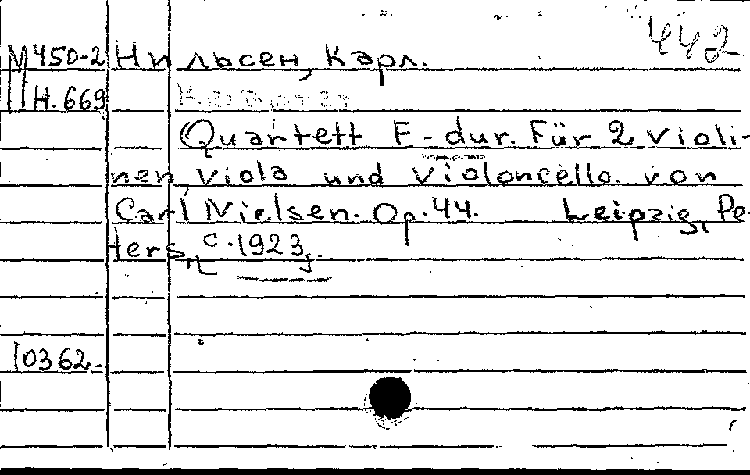 442
М450-2 Нильсен, Карл.
Н.669
Quartett F-dur. Für 2 Violi-
nen, Viola und Violoncello. von
Carl Nielsen. Op.44. Leipzig, Pe-
ters, c.1923.
10362.